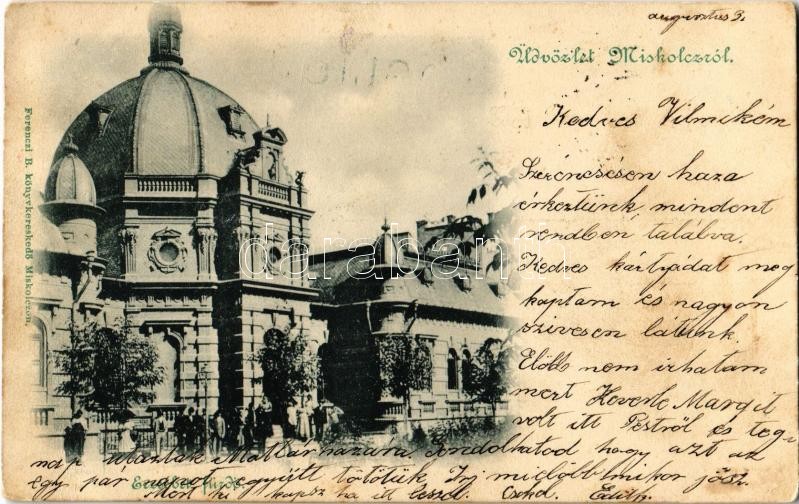 augusztus 3.
Üdvözlet Miskolczról.
Kedves Vilmikém
Szerencsésen haza
érkeztünk mindent
rendben találva.
Kedves kártyádat meg
kaptam és nagyon
szivesen látunk.
Előbb nem irhatam
mert Keverle Margit
volt itt Pestről és teg-
nap utaztak Mattárhazara. Gondolhatod hogy azt az
egy par napot együtt töltöttük Irj mielőbb mikor jösz.
Erzsébet fürdő.
Mert ha itt leszel. Csókol Edith
Ferenczi B. könyvkereskedő Miskolczon.
darabanth.com